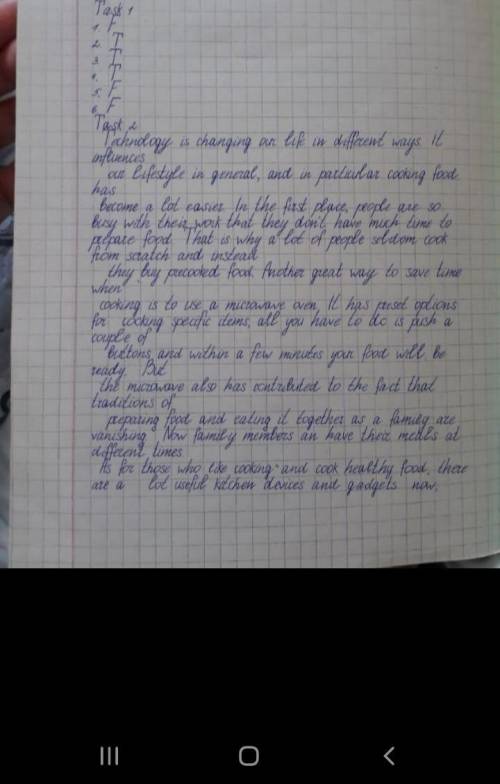 Task 1
1. F
2. T
3. T
4. T
5. F
6. F
Task 2
Technology is changing our life in different ways. It
influences
our lifestyle in general, and in particular cooking food
has
become a lot easier. In the first place, people are so
busy with their work that they don't have much time to
prepare food. That is why a lot of people seldom cook
from scratch and instead
they buy precooked food. Another great way to save time
when
cooking is to use a microwave oven. It has preset options
for cooking specific items, all you have to do is push a
couple of
buttons and within a few minutes your food will be
ready. But
the microwave also has contributed to the fact that
traditions of
preparing food and eating it together as a family are
vanishing. Now family members an have their meals at
different times.
As for those who like cooking and cook healthy food, there
are a lot useful kitchen devices and gadgets now,